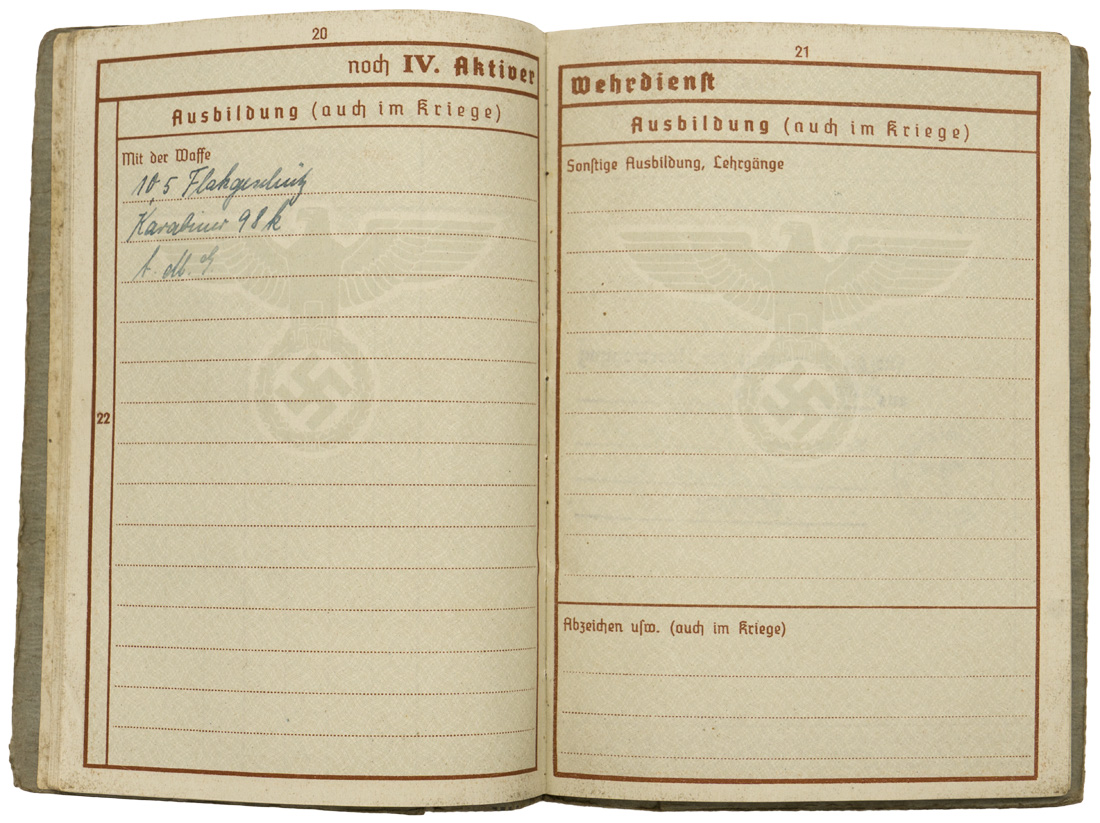 20
noch IV. Aktiver
Ausbildung (auch im Kriege)
Mit der Waffe
10,5 Flakgeschütz
Karabiner 98 k
22
21
Wehrdienst
Ausbildung (auch im Kriege)
Sonstige Ausbildung, Lehrgänge
Abzeichen usw. (auch im Kriege)